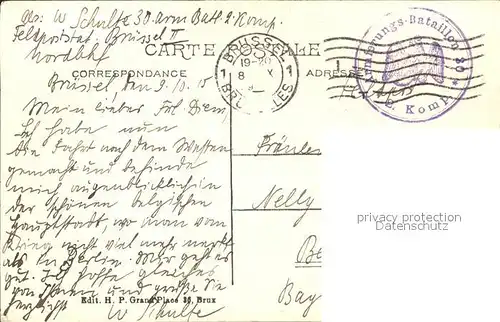 Abs: W Schulte 30. Arm Batl. 2. Komp.
Feldpoststat. Brüssel II
Nordbhf
CARTE POSTALE
CORRESPONDANCE
ADRESSE
BRUSSEL
1 19-20 1
8 X
BRUXELLES
Armierungs-Bataillon 30
2. Komp.
Brüssel, den 9./10. 15
Mein lieber Frl.
Ich habe nun
die Fahrt nach dem Westen
gemacht und befinde
mich augenblicklich in
der schönen belgischen
Hauptstadt, wo man vom
Krieg nicht viel mehr merkt
als in Berlin. Mir geht es
gut. Ich hoffe gleiches
von Ihnen und grüße Sie
herzlichst
W Schulte
Edit. H. P. Grand'Place 30, Brux
Fräulein
Nelly
Bay
privacy-protection
Datenschutz